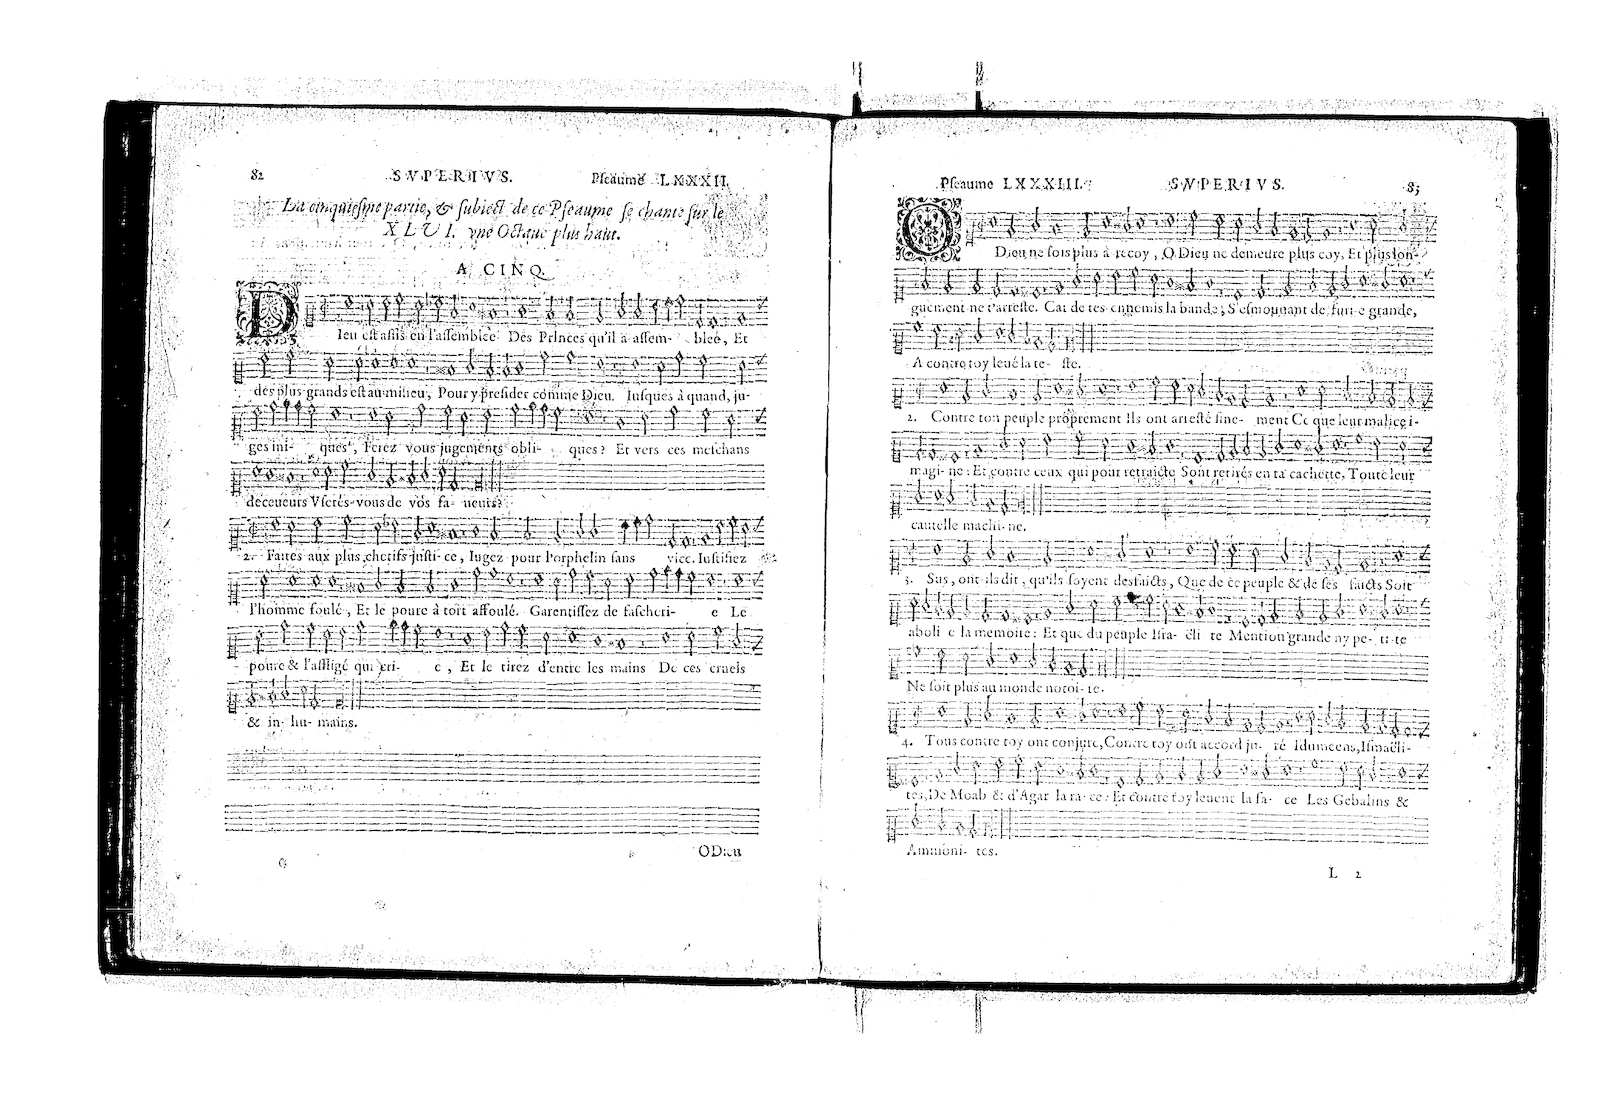 82 SVPERIVS. Pseaume LXXXII.
La cinquiesme partie, & subiect de ce Pseaume se chante sur le
XLVI. vne Octaue plus haut.
A CINQ.
DIeu est assis en l'assemblée Des Princes qu'il a assem- blée, Et
des plus grands est au milieu, Pour y presider comme Dieu. Iusques à quand, ju-
ges ini- ques, Ferez vous jugements obli- ques? Et vers ces meschans
deceueurs Vserés-vous de vos fa- ueurs?
2. Faites aux plus chetifs justi-ce, Iugez pour l'orphelin sans vice. Iustifiez
l'homme foulé, Et le poure à tort affoulé. Garentissez de fascheri- e Le
poure & l'affligé qui cri- e, Et le tirez d'entre les mains De ces cruels
& in- hu- mains.
O Dieu
Pseaume LXXXIII. SVPERIVS. 83
O Dieu ne sois plus à recoy, O Dieu ne demeure plus coy, Et plus lon-
guement ne t'arreste. Car de tes ennemis la bande, S'esmouuant de furi-e grande,
A contre toy leué la te- ste.
2. Contre ton peuple proprement Ils ont arresté fine- ment Ce que leur malice i-
magi-ne: Et contre ceux qui pour retraicte Sont retirés en ta cachette, Toute leur
cautelle machi-ne.
3. Sus, ont-ils dit, qu'ils soyent desfaicts, Que de ce peuple & de ses faicts Soit
aboli e la memoire: Et que du peuple Isra- ëli te Mention grande ny pe- ti-te
Ne soit plus au monde notoi-re.
4. Tous contre toy ont conjuré, Contre toy ont accord ju- ré Idumeens, Ismaëli-
tes, De Moab & d'Agar la ra-ce: Et contre toy leuent la fa- ce Les Gebalins &
Ammoni- tes.
L 2